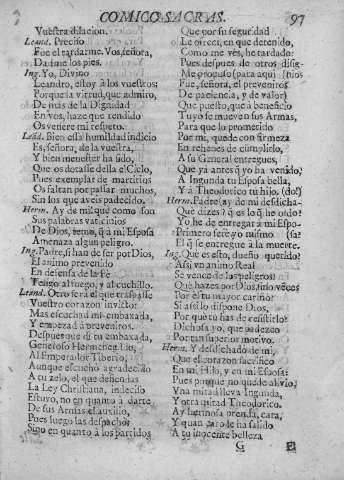 COMICO-SACRAS. 97
Vuestra dilacion.
Leand. Preciso
Fue el tardarme. Vos, señora,
Dadme los pies.
Ing. Yo, Divino
Leandro, estoy à los vuestros:
Porque la virtud, que admiro,
De màs de la Dignidad
En vos, haze que rendido
Os venere mi respeto.
Lead. Bien essa humildad indicio
Es, señora, de la vuestra,
Y bien menester ha sido,
Que os dotasse della el Cielo,
Pues exemplar de martirios
Os faltan por passar muchos,
Sin los que aveis padecido.
Herm. Ay de mi! què como son
Sus palabras vaticinios
De Dios, temo, q̃ à mi Esposa
Amenaza algun peligro.
Ing. Padre, si han de ser por Dios,
El animo prevenido
En defensa de la Fè
Tengo al fuego, y al cuchillo.
Leand. Otro serà el que traspasse
Vuestro corazon invicto:
Mas escuchad mi embaxada,
Y empezad à preveniros.
Despues que di tu embaxada,
Generoso Hermenegildo,
Al Emperador Tiberio,
Aunque escuchò agradecido
A tu zelo, el que defiendas
La Ley Christiana, indeciso
Estuvo, no en quanto à darte
De sus Armas el auxilio,
Pues luego las despachò;
Sino en quanto à los partidos
Que por su seguridad
Le ofreci, en que detenido,
Como me vès, he tardado:
Pues despues de otros disig-
Me propuso (para aqui (nios
Fue, señora, el preveniros
De paciencia, y de valor)
Que puesto, que à beneficio
Tuyo se mueven sus Armas,
Para que lo prometido
Por mi, quede con firmeza
En rehenes de cumplirlo,
A su General entregues,
Que ya antes q̃ yo ha venido,
A Ingunda tu Esposa bella,
Y à Theodorico tu hijo. (do?
Herm. Padre (ay de mi desdicha-
Què dizes? q̃ es lo q̃ he oido?
Yo he de entregar à mi Espo-
Primero serè yo mismo (sa?
El q̃ se entregue à la muerte.
Ing. Què es esto, dueño querido?
Assi vn animo Real
Se vence de los peligros?
Què hazes por Dios, si no vences
Por èl tu mayor cariño?
Si assi lo dispone Dios,
Por què tu has de resistirlo?
Dichosa yo, que padezco
Por tan superior motivo.
Herm. Y desdichado de mi,
Que el corazon sacrifico
En mi Hijo, y en mi Esposa:
Pues porque no quede alivio,
Vna mitad lleva Ingunda,
Y otra mitad Theodorico.
Ay hermosa prenda, cara,
Y quan caro le ha salido
A tu inocente belleza
G El